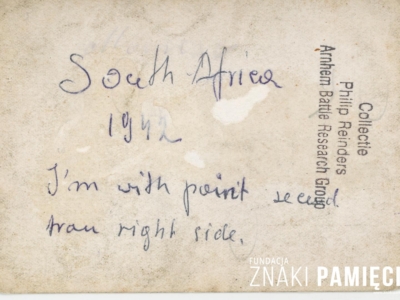 South Africa
1942
I'm with point secend
trau right side.
Collectie
Philip Reinders
Arnhem Battle Research Group
FUNDACJA
ZNAKI PAMIĘCI